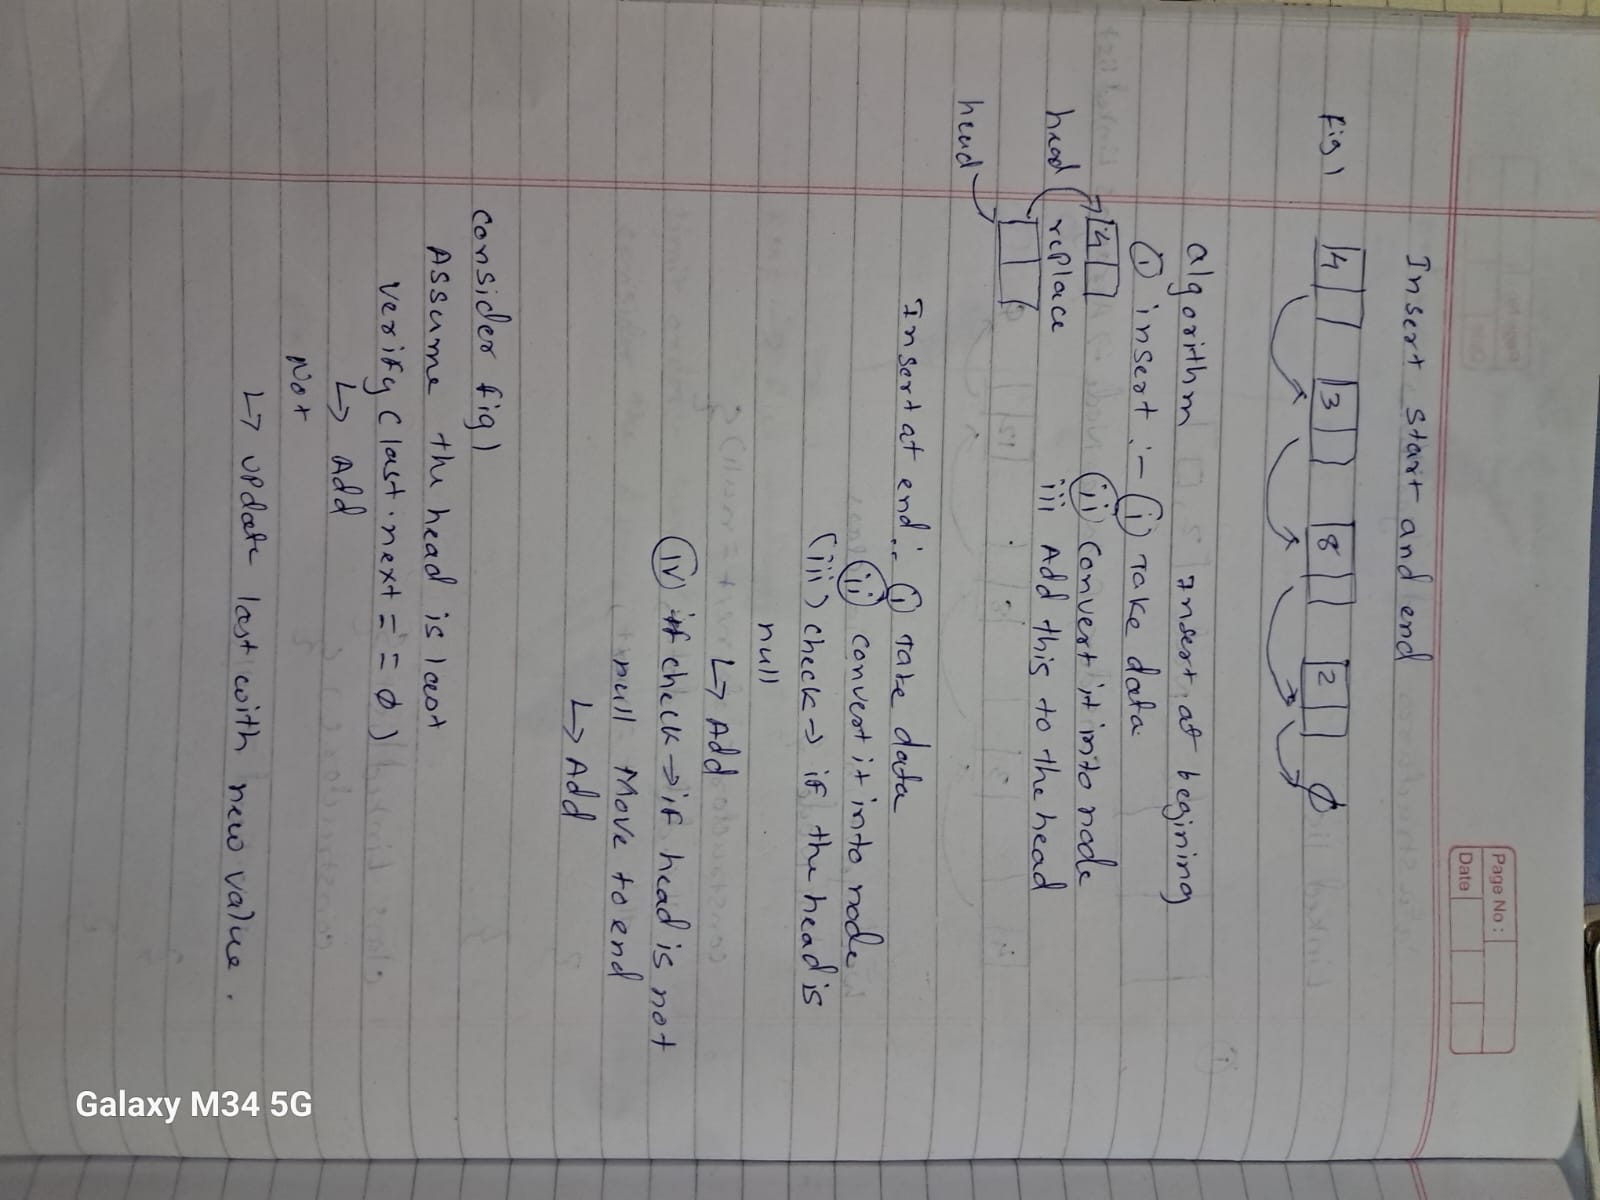 Page No :
Date
Insert start and end
fig 1 4 3 8 2 ∅
algorithm Insert at begining
① insert :- (i) Take data
4 (ii) convert it into node
head replace iii Add this to the head
head
Insert at end :- (i) Take data
(ii) convert it into node
(iii) check → if the head is
null
↳ Add
(iv) check → if head is not
null Move to end
↳ Add
consider fig 1
Assume the head is last
verify (last.next = = ∅)
↳ Add
Not
↳ update last with new value.
Galaxy M34 5G